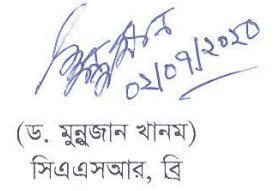 ০২/০৭/২০২০
(ড. মুন্নুজান খানম)
সিএএসআর, ব্রি